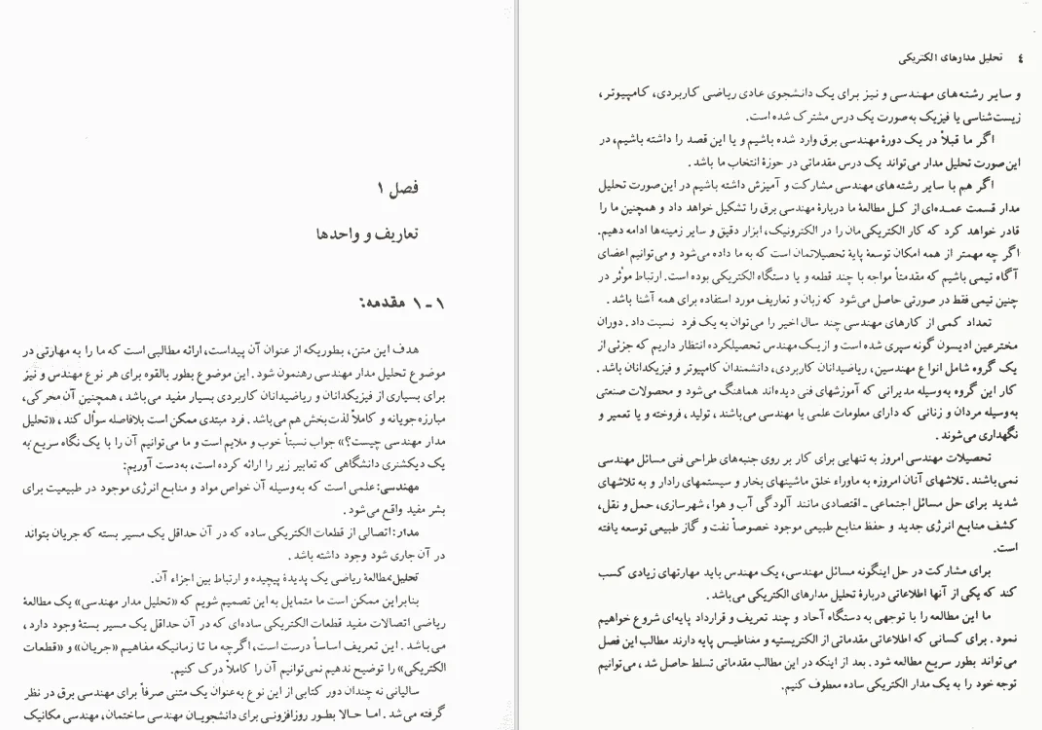 فصل ۱
تعاریف و واحدها
۱-۱ مقدمه:
هدف این متن، بطوریکه از عنوان آن پیداست، ارائه مطالبی است که ما را به مهارتی در
موضوع تحلیل مدار مهندسی رهنمون شود. این موضوع بطور بالقوه برای هر نوع مهندس و نیز
برای بسیاری از فیزیکدانان و ریاضیدانان کاربردی بسیار مفید می‌باشد، همچنین آن محرکی،
مبارزه‌جویانه و کاملاً لذت‌بخش هم می‌باشد. فرد مبتدی ممکن است بلافاصله سوأل کند، «تحلیل
مدار مهندسی چیست؟» جواب نسبتاً خوب و ملایم است و ما می‌توانیم آن را با یک نگاه سریع به
یک دیکشنری دانشگاهی که تعابیر زیر را ارائه کرده است، به‌دست آوریم:
مهندسی: علمی است که به‌وسیله آن خواص مواد و منابع انرژی موجود در طبیعت برای
بشر مفید واقع می‌شود.
مدار: اتصالی از قطعات الکتریکی ساده که در آن حداقل یک مسیر بسته که جریان بتواند
در آن جاری شود وجود داشته باشد.
تحلیل: مطالعهٔ ریاضی یک پدیدهٔ پیچیده و ارتباط بین اجزاء آن.
بنابراین ممکن است ما متمایل به این تصمیم شویم که «تحلیل مدار مهندسی» یک مطالعهٔ
ریاضی اتصالات مفید قطعات الکتریکی ساده‌ای که در آن حداقل یک مسیر بستهٔ وجود دارد،
می‌باشد. این تعریف اساساً درست است، اگرچه ما تا زمانیکه مفاهیم «جریان» و «قطعات
الکتریکی» را توضیح ندهیم نمی‌توانیم آن را کاملاً درک کنیم.
سالیانی نه چندان دور کتابی از این نوع به‌عنوان یک متنی صرفاً برای مهندسی برق در نظر
گرفته می‌شد. اما حالا بطور روزافزونی برای دانشجویان مهندسی ساختمان، مهندسی مکانیک
۴ تحلیل مدارهای الکتریکی
و سایر رشته‌های مهندسی و نیز برای یک دانشجوی عادی ریاضی کاربردی، کامپیوتر،
زیست‌شناسی یا فیزیک به‌صورت یک درس مشترک شده است.
اگر ما قبلاً در یک دورهٔ مهندسی برق وارد شده باشیم و یا این قصد را داشته باشیم، در
این‌صورت تحلیل مدار می‌تواند یک درس مقدماتی در حوزهٔ انتخاب ما باشد.
اگر هم با سایر رشته‌های مهندسی مشارکت و آمیزش داشته باشیم در این‌صورت تحلیل
مدار قسمت عمده‌ای از کل مطالعهٔ ما دربارهٔ مهندسی برق را تشکیل خواهد داد و همچنین ما را
قادر خواهد کرد که کار الکتریکی‌مان را در الکترونیک، ابزار دقیق و سایر زمینه‌ها ادامه دهیم.
اگر چه مهمتر از همه امکان توسعهٔ پایهٔ تحصیلاتمان است که به ما داده می‌شود و می‌توانیم اعضای
آگاه تیمی باشیم که مقدمتاً مواجه با چند قطعه و یا دستگاه الکتریکی بوده است. ارتباط موثر در
چنین تیمی فقط در صورتی حاصل می‌شود که زبان و تعاریف مورد استفاده برای همه آشنا باشد.
تعداد کمی از کارهای مهندسی چند سال اخیر را می‌توان به یک فرد نسبت داد. دوران
مخترعین ادیسون گونه سپری شده است و از یک مهندس تحصیلکرده انتظار داریم که جزئی از
یک گروه شامل انواع مهندسین، ریاضیدانان کاربردی، دانشمندان کامپیوتر و فیزیکدانان باشد.
کار این گروه به‌وسیله مدیرانی که آموزشهای فنی دیده‌اند هماهنگ می‌شود و محصولات صنعتی
به‌وسیله مردان و زنانی که دارای معلومات علمی یا مهندسی می‌باشند، تولید، فروخته و یا تعمیر و
نگهداری می‌شوند.
تحصیلات مهندسی امروز به تنهایی برای کار بر روی جنبه‌های طراحی فنی مسائل مهندسی
نمی‌باشند. تلاشهای آنان امروزه به ماوراء خلق ماشینهای بخار و سیستمهای رادار و به تلاشهای
شدید برای حل مسائل اجتماعی - اقتصادی مانند آلودگی آب و هوا، شهرسازی، حمل و نقل،
کشف منابع انرژی جدید و حفظ منابع طبیعی موجود خصوصاً نفت و گاز طبیعی توسعه یافته
است.
برای مشارکت در حل اینگونه مسائل مهندسی، یک مهندس باید مهارتهای زیادی کسب
کند که یکی از آنها اطلاعاتی دربارهٔ تحلیل مدارهای الکتریکی می‌باشد.
ما این مطالعه را با توجهی به دستگاه آحاد و چند تعریف و قرارداد پایه‌ای شروع خواهیم
نمود. برای کسانی که اطلاعاتی مقدماتی از الکتریسته و مغناطیس پایه دارند مطالب این فصل
می‌تواند بطور سریع مطالعه شود. بعد از اینکه در این مطالب مقدماتی تسلط حاصل شد، می‌توانیم
توجه خود را به یک مدار الکتریکی ساده معطوف کنیم.